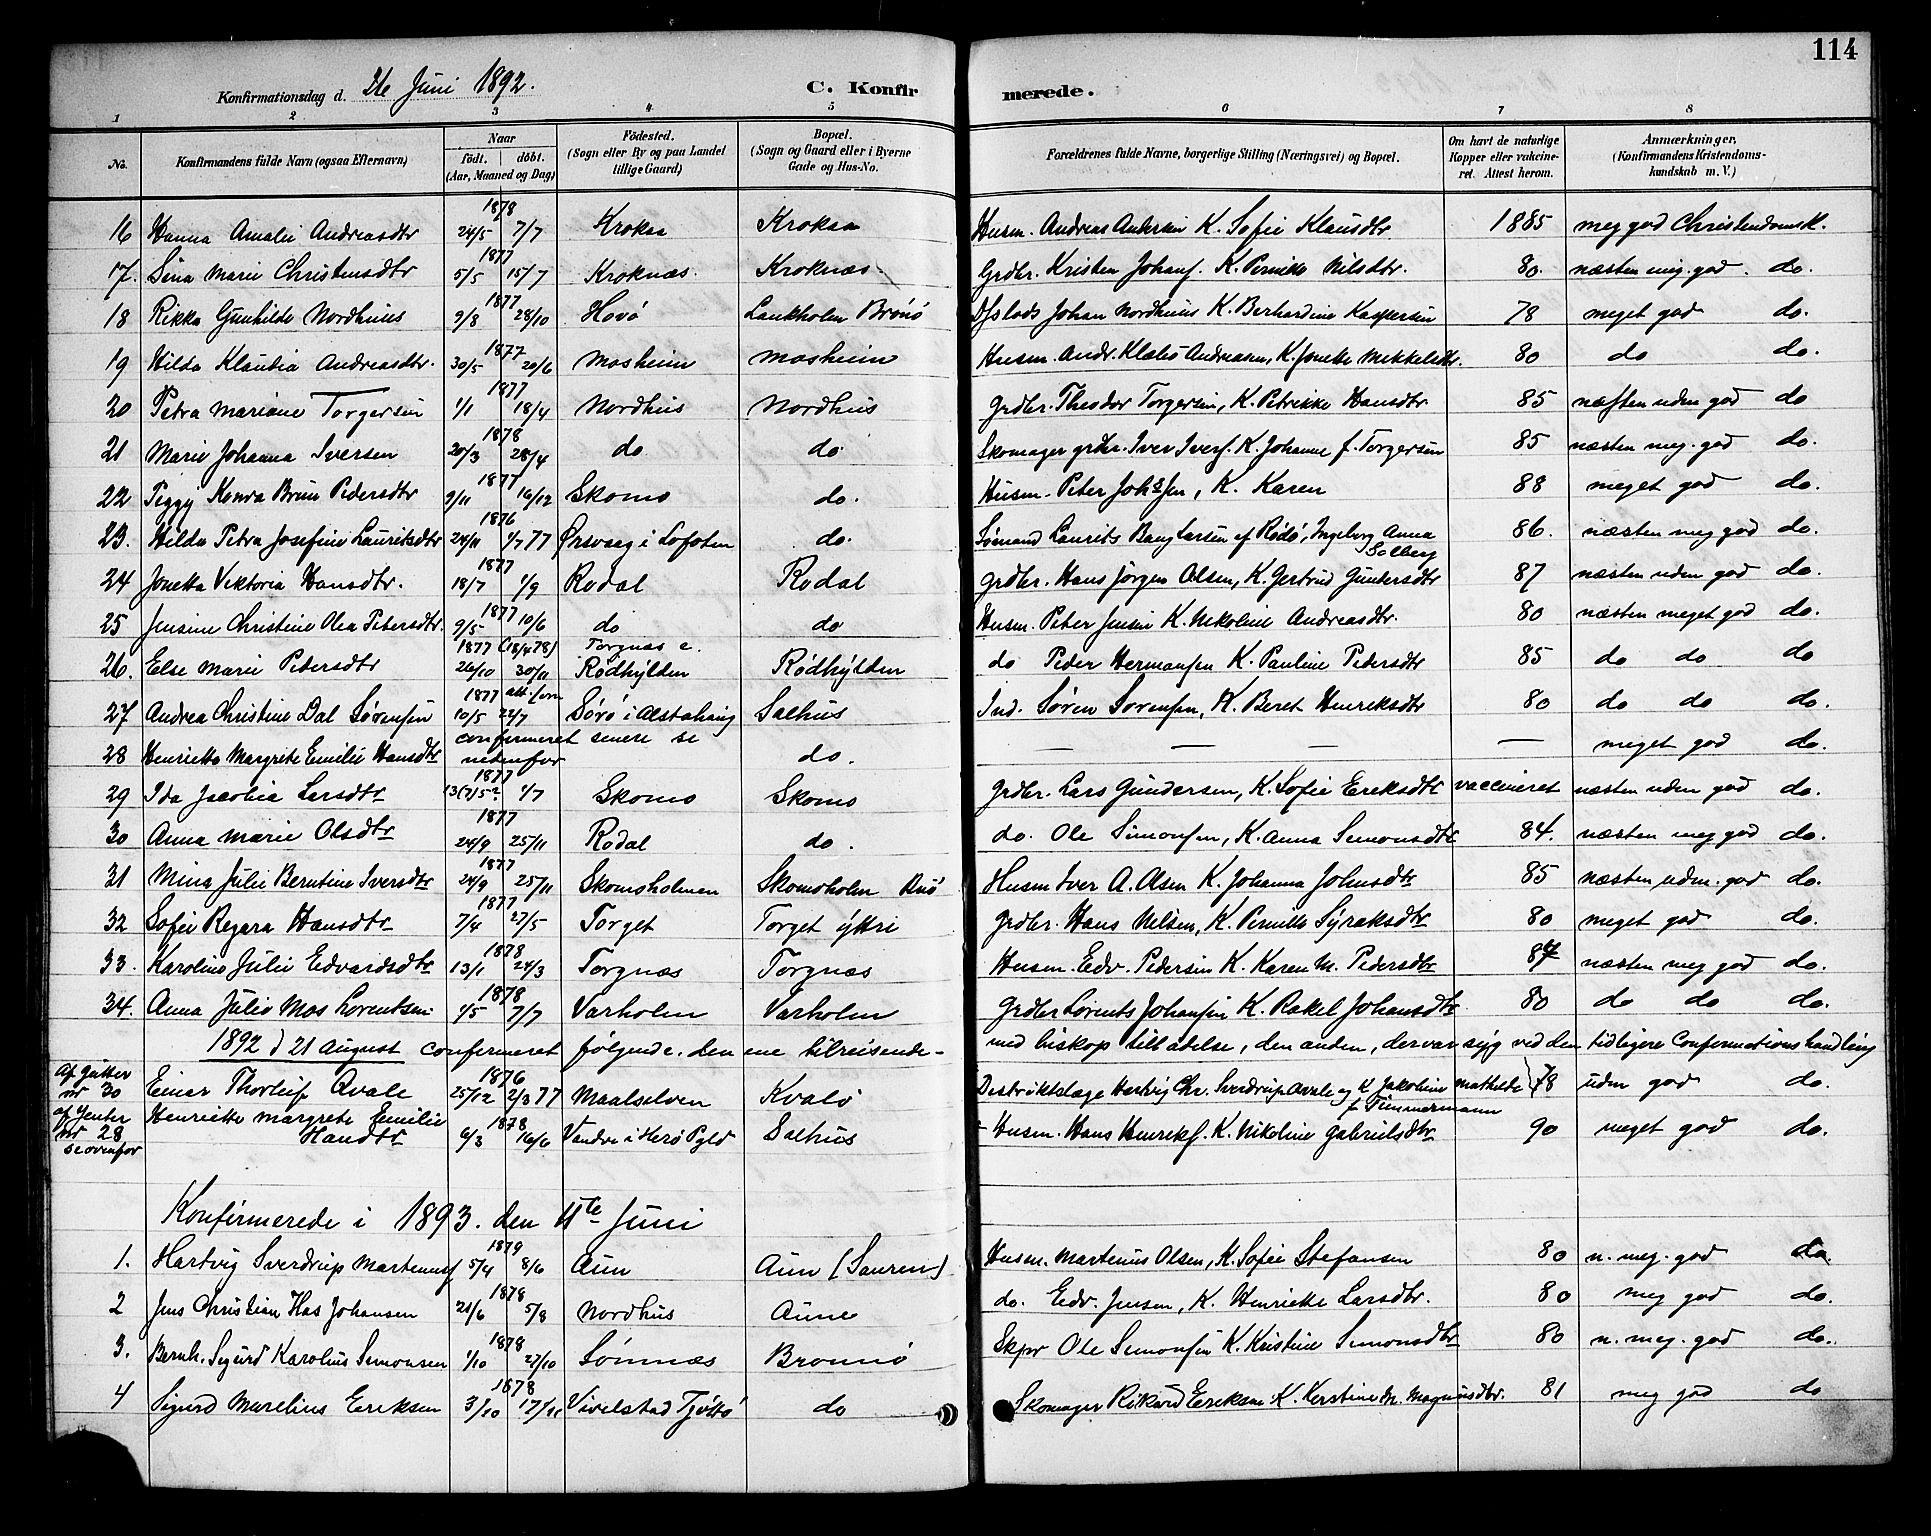 114
Konfirmationsdag d. 26 Juni 1892. C. Konfirmerede.
1 2 3 4 5 6 7 8
No. Konfirmandens fulde Navn (ogsaa Efternavn) Naar födt. döbt. (Aar, Maaned og Dag) Födested. (Sogn eller By og paa Landet tillige Gaard) Bopæl. (Sogn og Gaard eller i Byerne Gade og Hus-No. Forældrenes fulde Navne, borgerlige Stilling (Næringsvei) og Bopæl. Om havt de naturlige Kopper eller vakcineret. Attest herom. Anmærkninger, (Konfirmandens Kristendomskundskab m. V.)
16 Hanna Amalie Andreasdtr 1878 24/5 7/7 Krokaa Krokaa Husm. Andreas Andersen K. Sofie Klausdtr 1885 meg god Christendomsk.
17. Sina Marie Christensdtr 1877 5/5 15/7 Kroknæs. Kroknæs Grdbr. Kristen Johans. K. Pernille Nilsdtr. 80. næsten mig. god. do.
18 Rikka Gunhilde Nordhuus 1877 9/8 28/10 Hovö Lankholm Brönö Dfslods Johan Nordhuus K. Berhardine Kaspersen 78 meget god do.
19 Hilda Klaudia Andreasdtr. 1877 30/5 20/6 Mosheim Mosheim Husm. Andr. Klaus Andreasen, K. Jonette Mekkelsdtr. 80 do do.
20 Petra Mariane Torgersen 1877 1/1 18/4 Nordhus Nordhus Grdbr. Theodor Torgersen, K. Petrikke Hansdtr 85 næsten uden god do
21 Marie Johanna Iversen 1878 20/3 28/4 do do Skomager grdbr. Iver Ivers. K. Johanne f. Torgersen 85 næsten meg. god do.
22 Peggy Konra Brun Pedersdtr 1877 9/11 16/12 Skomo do. Husm. Peter Johssen, K. Karen 88 meget god do.
23. Hilda Petra Josefine Lauritsdtr 1876 24/11 1/7 77 Ørsvaag i Lofoten do. Sömand Laurits Bang Larsen af Rödö, Ingeborg Anna Solberg 86. næsten meg god do.
24 Jonetta Viktoria Hansdtr. 1877 18/7 1/9 Rodal Rodal grdbr. Hans Jörgen Olsen, K. Gertrud Gundersdtr 87 næsten uden god do.
25 Jensine Christine Olea Petersdtr. 1877 9/5 10/6 do do Husm. Peter Jensen K. Nikoline Andreasdtr. 80 næsten meget god do.
26. Else Marie Pedersdtr 1877 (18/4 78) 26/10 30/11 Torgnæs e. Rödhylden Rödhylden do Peder Hermansen K. Pauline Pedersdtr 85 do do do
27 Andrea Christine Dal Sörensen 1877 10/5 22/7 Sörö i Alstahaug Salhus Ind. Sören Sörensen, K. Beret Henriksdtr 80 do do do.
28 Henriette Margrete Emilie Hansdtr confirmeret senere se nedenfor do. — — — — meget god do.
29 Ida Jacobia Larsdtr 1877 13(7)5? 1/7 Skomo Skomo Grdbr. Lars Gundersen, K. Sofie Eriksdtr vaccineret næsten uden god do.
30 Anna Marie Olsdtr 1877 24/9 25/11 Rodal do. do. Ole Simonsen, K. Anna Simonsdtr 84. næsten meg god do.
31 Mina Julie Berntine Iversdtr 1877 24/9 25/11 Skomsholmen Skomsholm Husm Iver A. Olsen K. Johanna Johnsdtr 85 næsten udm. god do.
32 Sofie Regara Hansdtr 1877 7/4 27/5 Torget Torget ýttri grdbr. Hans Nilsen, K. Pernille Syraksdtr 80 meget god do.
33. Karoline Julie Edvardsdtr 1878 13/1 24/3 Torgnæs Torgnæs Husm. Edv. Pedersen K. Karen M. Pedersdtr næsten meg god do.
34. Anna Julie Mos Lorentsen 1878 1/5 7/7 Varholm Varholm Grdbr Lorents Johansen K. Rakel Johansdtr 80 do do do.
1892 d 21 August confirmeret følgende. den ene tilreisende- med biskops tilladelse, den anden, der var syg ved den tidligere Confirmationshandling
Af Gutter nr 30 Einar Thorleif Qvale 1876 25/12 2/3 77 Maalselven Kvalö Distriktslæge Hartvig Chr. Sverdrup Qvale og K. Jakobine Mathilde f. Timmermann 78 uden god do.
af Jenter nr 28 se ovenfor Henriette Margrete Emilie Hansdtr 1878 6/3 16/6 Vandve i Herö Pgld Salhus - Husm. Hans Henriks. K. Nikoline Gabrielsdtr 90 meget god do.
Konfirmerede i 1893. den 11te Juni
1. Hartvig Sverdrup Martinus 1879 5/4 8/6 Aun Aun (Sauren) Husm. Martinus Olsen, K. Sofie Stefansen 80 n. meg. god do
2 Jens Christian Has Johansen 1878 21/6 5/8 Nordhus Aune do. Edv. Jensen, K. Henrikke Larsdtr. 80 meg god do.
3. Bernh. Sigurd Karolius Simonsen 1878 1/10 27/10 Sömnæs Brönnö Skpr Ole Simonsen K. Kristine Simonsdtr 80 n. meg. god do.
4 Sigurd Marelius Eriksen 1878 3/10 17/11 Vivelstad Tjöttö do Skomager Rikard Eriksen K. Kerstine M. Magnusdtr. 81 meg god do